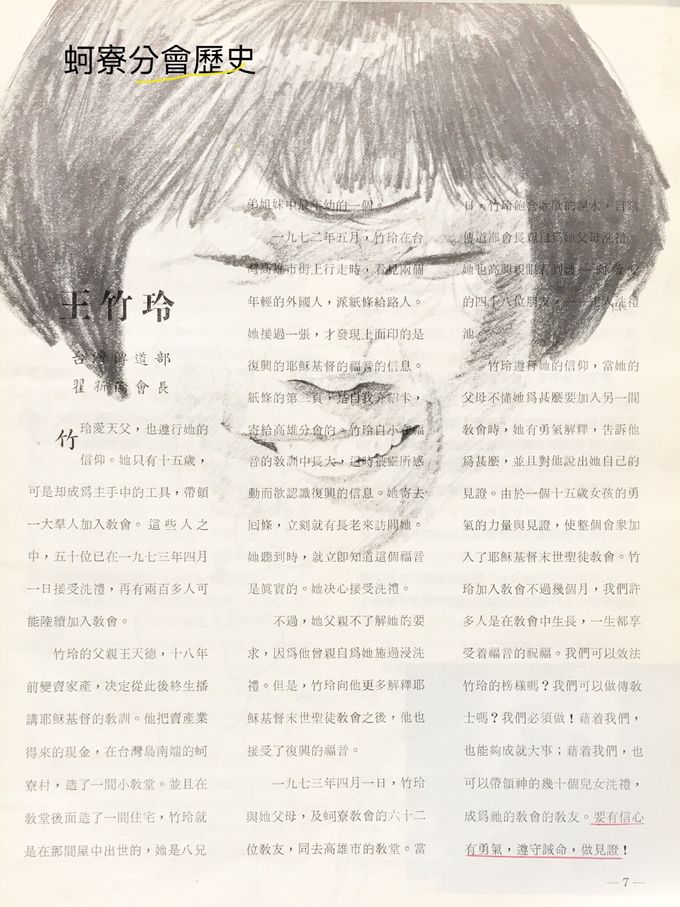 蚵寮分會歷史
王竹玲
台灣傳道部
翟新信會長
竹玲愛天父，也遵行她的
信仰。她只有十五歲，
可是却成爲主手中的工具，帶領
一大羣人加入敎會。這些人之
中，五十位已在一九七三年四月
一日接受洗禮，再有兩百多人可
能陸續加入敎會。
竹玲的父親王天德，十八年
前變賣家產，决定從此後終生播
講耶穌基督的敎訓。他把賣產業
得來的現金，在台灣島南端的蚵
寮村，造了一間小敎堂。並且在
敎堂後面造了一間住宅，竹玲就
是在那間屋中出世的，她是八兄
弟姐妹中最年幼的一個。
一九七二年五月，竹玲在台
灣高雄市街上行走時，看見兩個
年輕的外國人，派紙條給路人。
她接過一張，才發現上面印的是
復興的耶穌基督的福音的信息。
紙條的第二頁，是自我介紹卡，
寄給高雄分會的。竹玲自小在福
音的敎訓中長大，這時被靈所感
動而欲認識復興的信息。她寄去
囘條，立刻就有長老來訪問她。
她聽到時，就立卽知道這個福音
是眞實的。她决心接受洗禮。
不過，她父親不了解她的要
求，因爲他曾親自爲她施過浸洗
禮。但是，竹玲向他更多解釋耶
穌基督末世聖徒敎會之後，他也
接受了復興的福音。
一九七三年四月一日，竹玲
與她父母，及蚵寮敎會的六十二
位敎友，同去高雄市的敎堂。當
日，竹玲飽含欣欣的淚水，目睹
傳道部會長親自爲她父母洗禮。
她也高興親眼看到雖一間敎堂
的四十八位朋友，一一走入洗禮
池。
竹玲遵行她的信仰，當她的
父母不懂她爲甚麽要加入另一間
敎會時，她有勇氣解釋，告訴他
爲甚麽，並且對他說出她自己的
見證。由於一個十五歲女孩的勇
氣的力量與見證，使整個會衆加
入了耶穌基督末世聖徒敎會。竹
玲加入敎會不過幾個月，我們許
多人是在敎會中生長，一生都享
受着福音的祝福。我們可以效法
竹玲的榜樣嗎？我們可以做傳敎
士嗎？我們必須做！藉着我們，
也能夠成就大事；藉着我們，也
可以帶領神的幾十個兒女洗禮，
成爲祂的敎會的敎友。要有信心
有勇氣，遵守誡命，做見證！
—7—